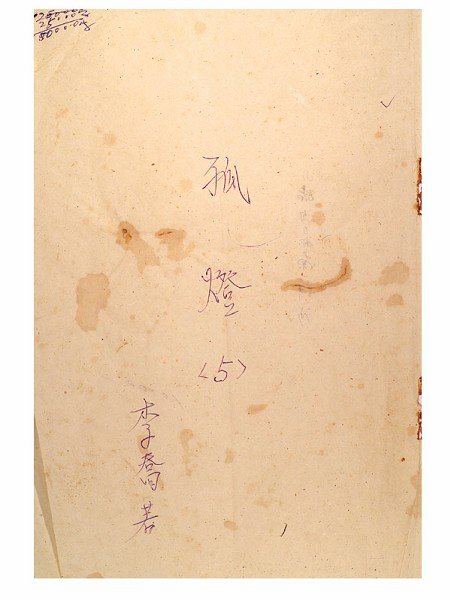 孤燈
<5>
李喬著